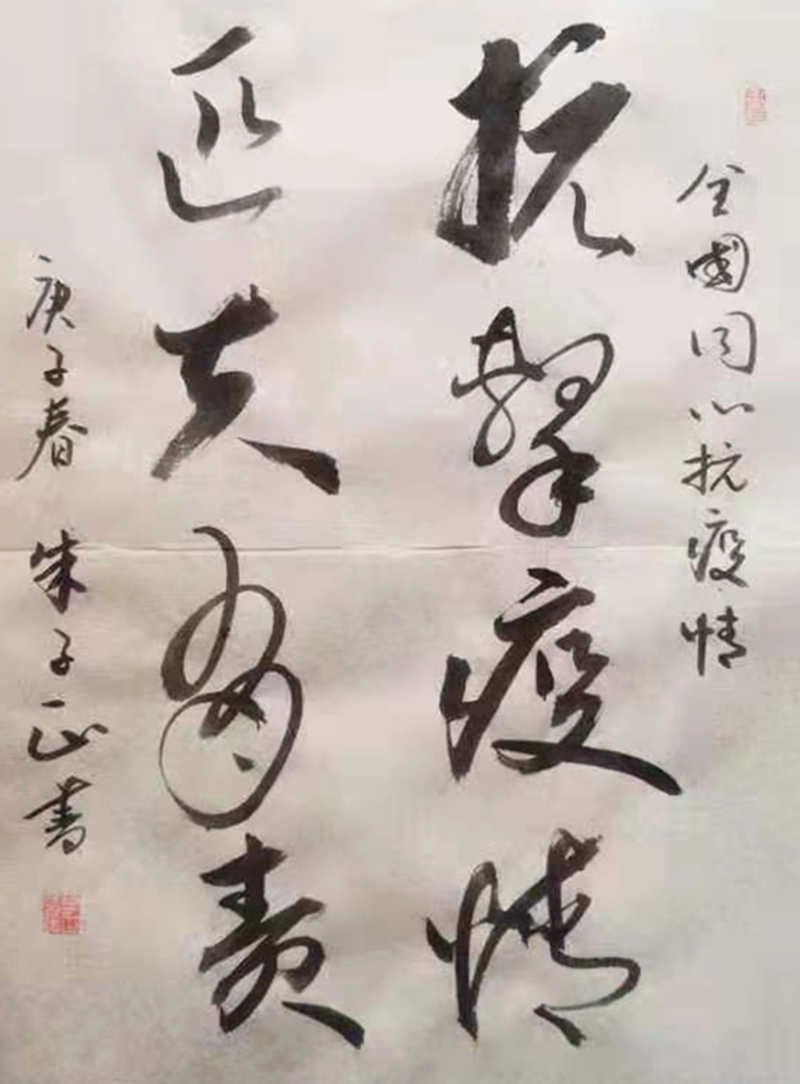 全国同心抗疫情
抗击疫情
匹夫有责
庚子春 朱子正书